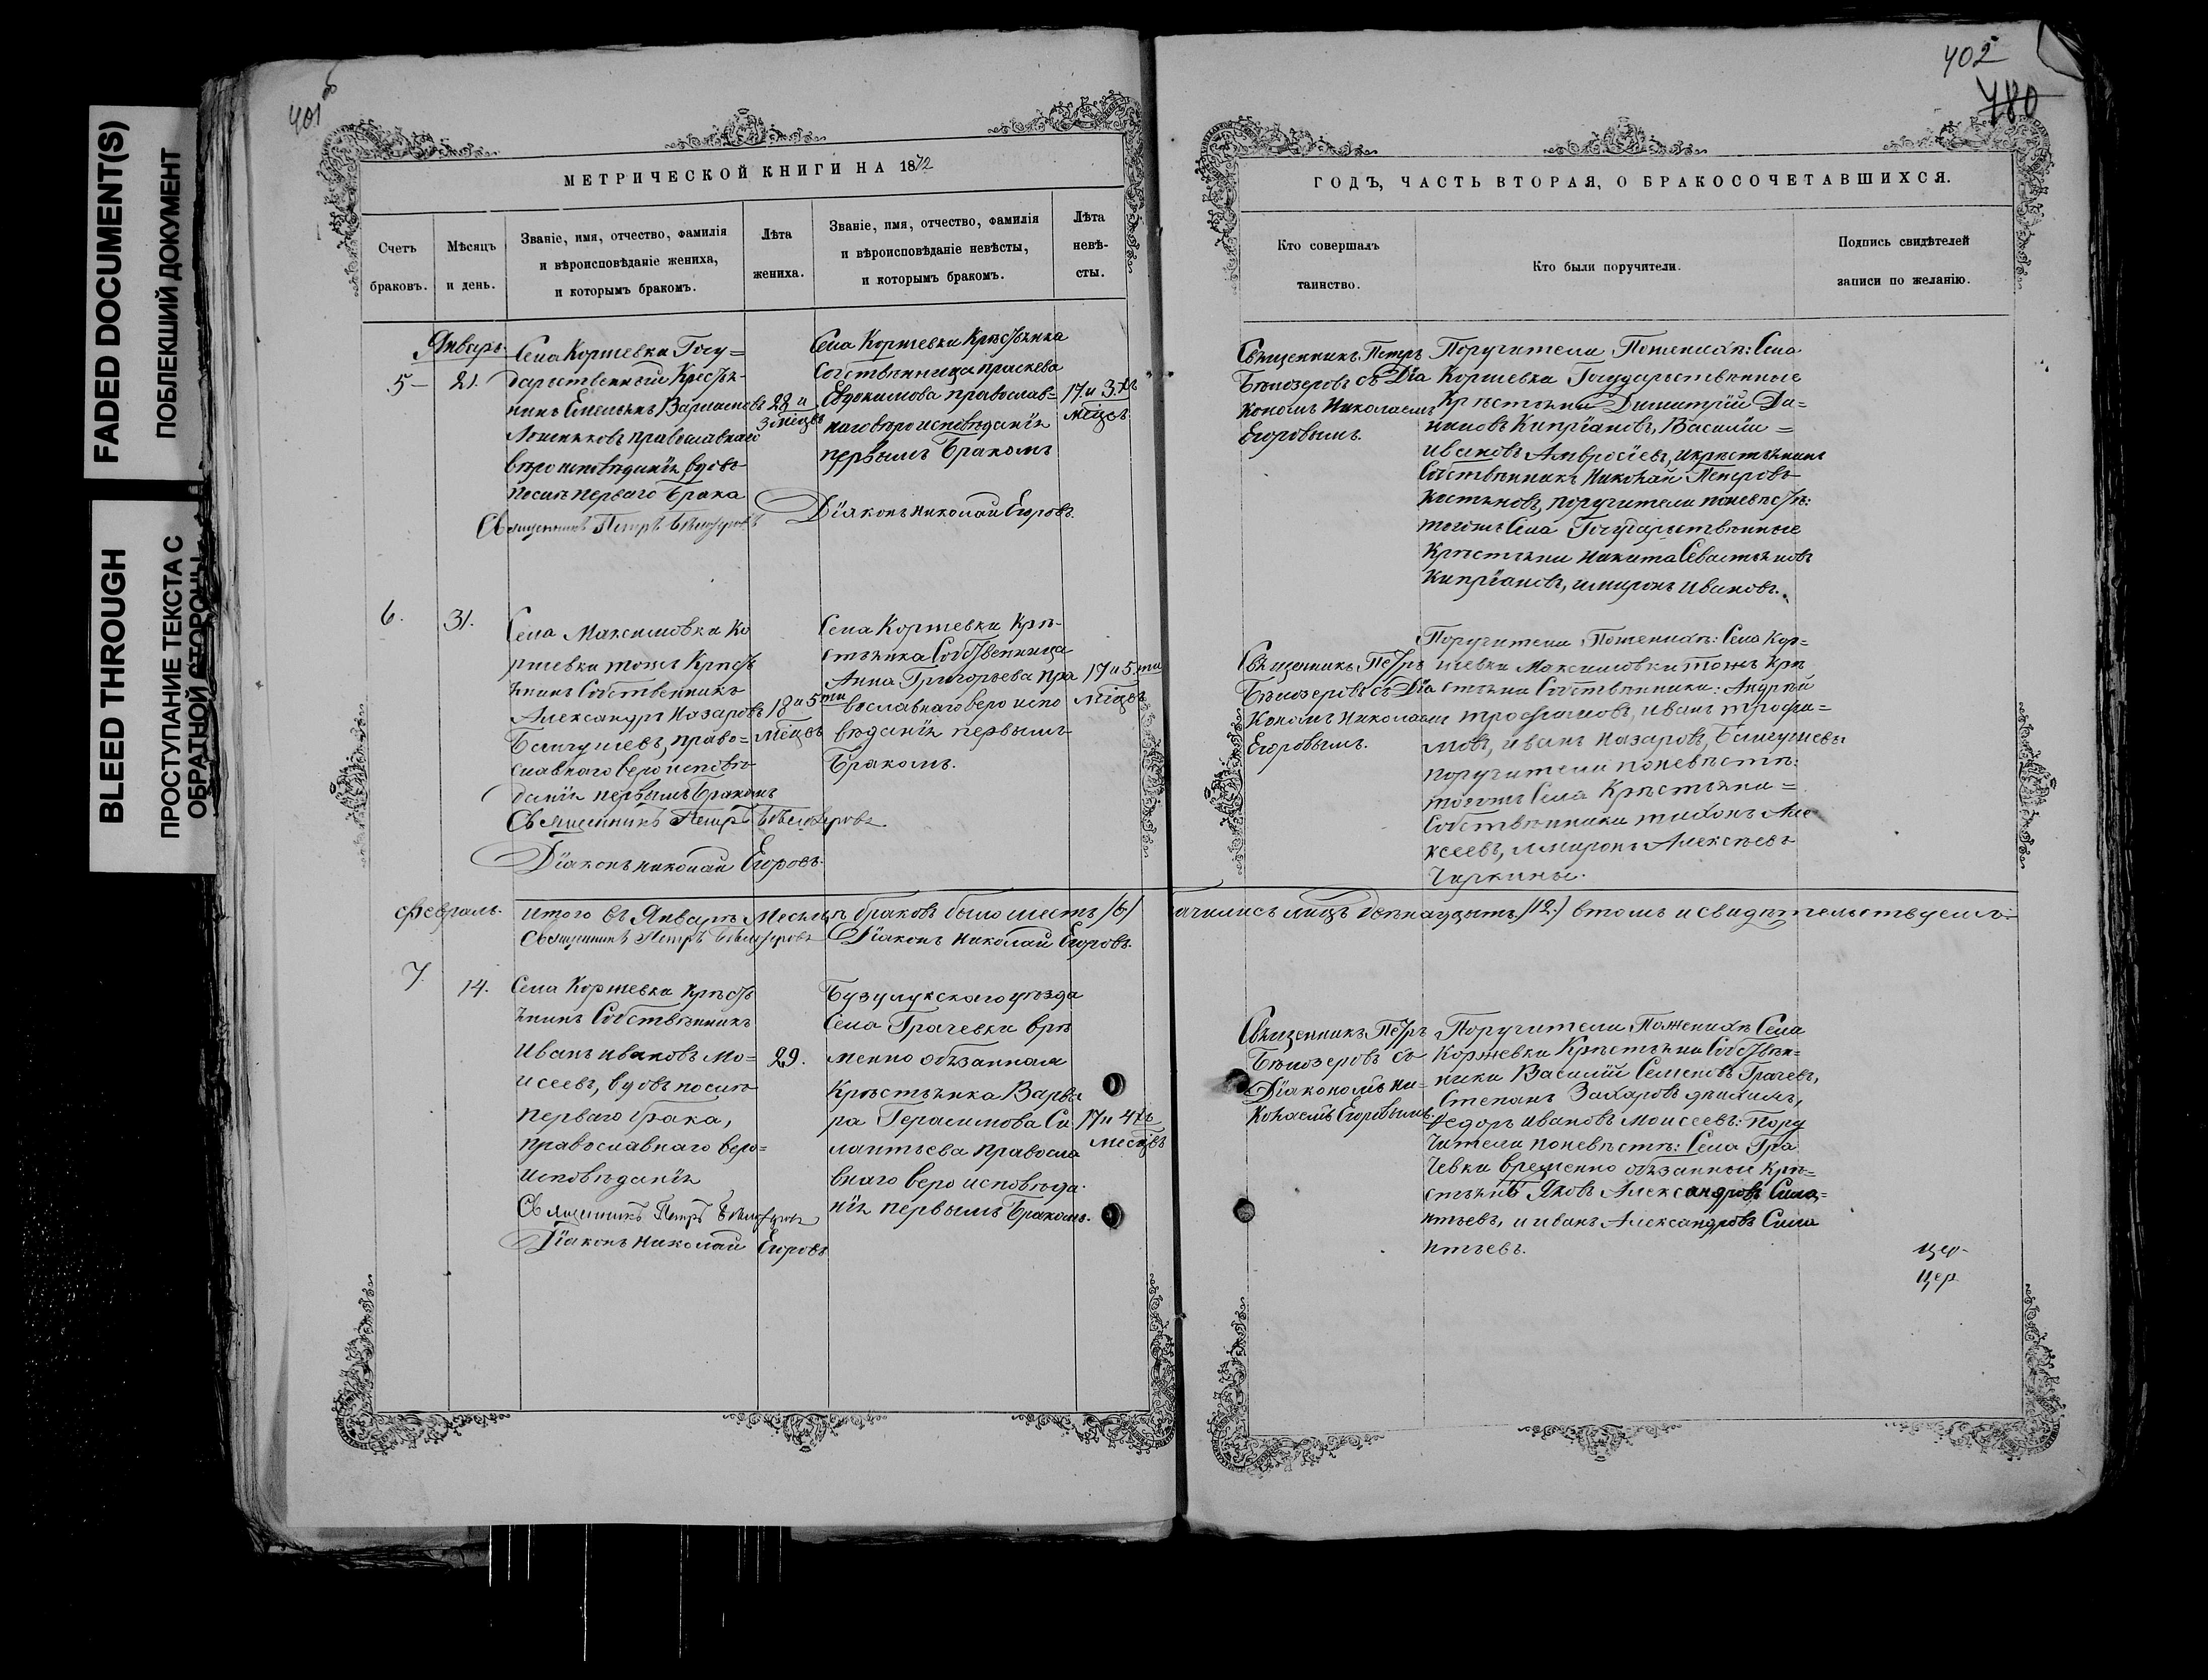 FADED DOCUMENT(S)
ПОБЛЕКШИЙ ДОКУМЕНТ
BLEED THROUGH
ПРОСТУПАНИЕ ТЕКСТА С
ОБРАТНОЙ СТОРОНЫ
401 об
МЕТРИЧЕСКОЙ КНИГИ НА 1872
Счетъ
браковъ.
Мѣсяцъ
и день.
Званіе, имя, отчество, фамилія
и вѣроисповѣданіе жениха,
и которымъ бракомъ.
Лѣта
жениха.
Званіе, имя, отчество, фамилія
и вѣроисповѣданіе невѣсты,
и которымъ бракомъ.
Лѣта
невѣ-
сты.
Январь.
5 -
21.
Села Коржевки Госу=
дарственный Кресть-
янинъ Емельянъ Варламовъ
православнаго
вероисповѣданія вдовъ
послѣ перваго Брака
28 и
3 мѣсцъ
Села Коржевки Крѣстьянка
Собственница праскева
Евдокимова православ=
наго вѣроисповѣданія
первымъ Бракомъ
17. и 3.хъ
мѣсцъ
Священникъ Петръ Бѣлозеровъ
Діаконъ Николай Егоровъ.
6.
31.
Села Максимовка Ко
ржевка тожъ Крѣсть
янинъ Собственникъ
Александръ Назаровъ
право=
славнаго веро исповѣ
данія первымъ Бракомъ
18 и 5ти
мѣсцъ
Села Коржевки Крѣ-
стьянка Собственница
Анна Григорьева пра
вославнаго веро испо
вѣданія первымъ
Бракомъ.
17 и 5.ти
мѣсцъ
Священникъ Петръ Бѣлозеровъ
Діаконъ николай Егоровъ.
февраль.
итого въ Январѣ Месяцѣ браковъ было шесть /6/
Священникъ Петръ Бѣлозеровъ Діаконъ Николай Егоровъ.
7.
14.
Села Коржевки Крѣсть
янинъ Собственникъ
Иванъ ивановъ Мо=
исеевъ, вдовъ послѣ
перваго брака,
православнаго веро=
исповѣданія
29.
Бузулукскаго уѣзда
Села Грачевки врѣ
менно обязанная
Крѣстьянка Варва
ра Герасимова Си
лантьева Правосла
внаго веро исповѣда
нія первымъ Бракомъ.
17 и 4хъ
месяцъ
Священникъ Петръ Бѣлозеровъ
Діаконъ николай Егоровъ
402
480
ГОДЪ, ЧАСТЬ ВТОРАЯ, О БРАКОСОЧЕТАВШИХСЯ.
Кто совершалъ
таинство.
Кто были поручители.
Подпись свидѣтелей
записи по желанію.
Священникъ Петръ
Бѣлозеровъ съ Діа
кономъ Николаемъ
Егоровымъ.
Поручители Поженихѣ: Села
Коржевки Государственные
Крѣстьяни Димитрій Да=
ниловъ Кипріановъ, Василій =
ивановъ Амвросіевъ, икрѣстьянинъ
Собственникъ Николай Петровъ
поручители поневѣстѣ:
тогожъ Села Государственные
Крѣстьяни никита Севастьяновъ
Кипріановъ, имиронъ Ивановъ.
Священникъ Петръ
Бѣлозеровъ съ Діа
кономъ Николаемъ
Егоровымъ.
Поручители Поженихѣ: Села Кор=
жевки Максимовки тожъ Крѣ
стьяни Собственники: Андрѣй
трофимовъ, иванъ трофи=
мовъ, иванъ назаровъ,
поручители поневѣстѣ:
тогожъ Села Крѣстьяни =
Собственники тихонъ Але
ксеевъ, имиронъ Алексѣевъ
Чиркины.
ачились лицъ двѣнадцать /12./ втомъ и свидѣтельствуемъ:
Священникъ Петръ
Бѣлозеровъ съ
Діакономъ Ни-
колаемъ Егоровымъ.
Поручители Поженихѣ Села
Коржевки Крѣстьяни Собствѣн=
ники Василій Семеновъ Грачевъ,
Степанъ Захаровъ
Федоръ Ивановъ Моисеевъ: пору
чители поневѣстѣ: Села Гра
чевки временно обязанные Крѣ=
стьяни Яковъ Александровъ Сила=
нтьевъ, и иванъ Александровъ Сила
нтьевъ.
цер
цер